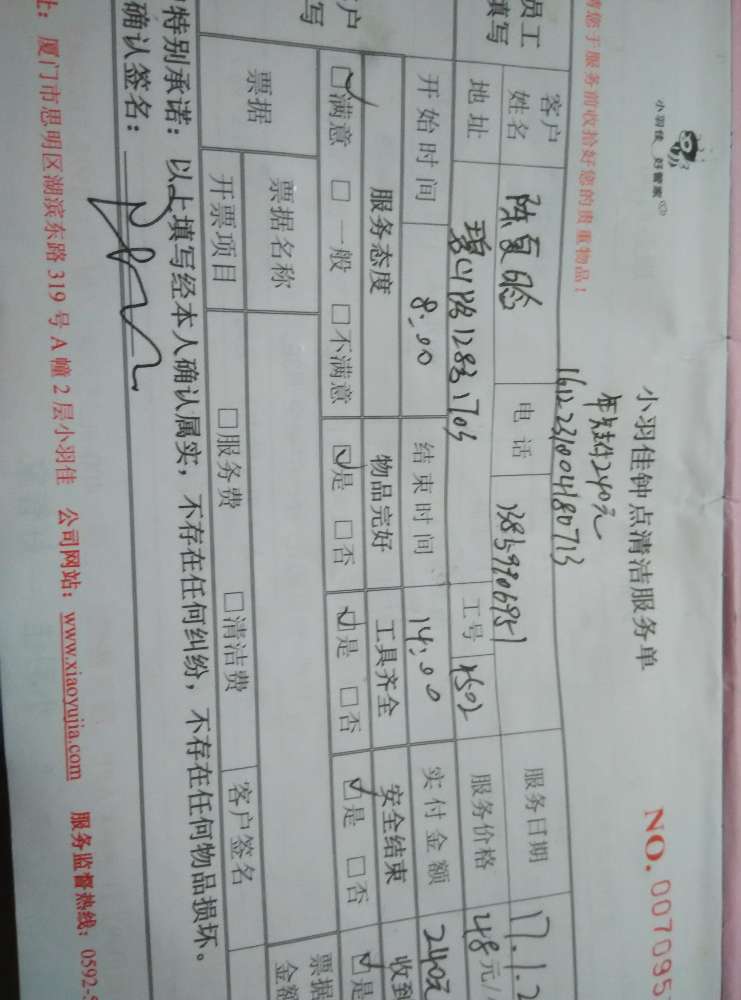 小羽佳 好管家
小羽佳钟点清洁服务单
NO. 007095
请您于服务前收拾好您的贵重物品！
240元
161223100480713
员工填写
客户姓名 陈夏
电话 13859906951
服务日期 17.1.2
地址 1283 1703
工号 1502
服务价格 48元/
开始时间 8:00
结束时间 14:00
实付金额 240元
户写
服务态度 物品完好 工具齐全 安全结束 收到
☑满意 □一般 □不满意 ☑是 □否 ☑是 □否 ☑是 □否 ☑是
票据
票据名称
票据金额
开票项目 □服务费 □清洁费 客户签名
特别承诺：以上填写经本人确认属实，不存在任何纠纷，不存在任何物品损坏。
确认签名：
址：厦门市思明区湖滨东路319号A幢2层小羽佳 公司网站：www.xiaoyujia.com 服务监督热线：0592-5